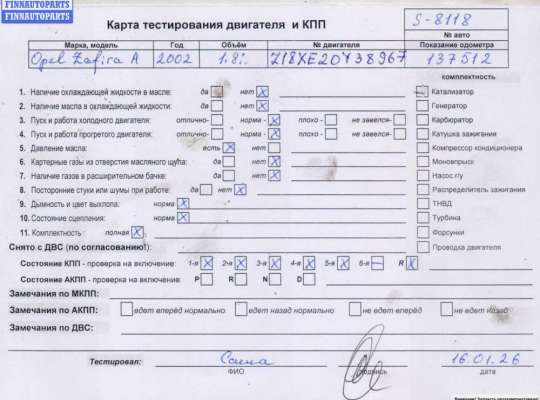 FINNAUTOPARTS
FINNAUTOPARTS
Карта тестирования двигателя и КПП
S-8118
№ авто
Марка, модель Год Объём № двигателя Показание одометра
Opel Zafira A 2002 1.8i Z18XE20Y38967 137512
комплектность
1. Наличие охлаждающей жидкости в масле: да нет X Катализатор
2. Наличие масла в охлаждающей жидкости: да нет X Генератор
3. Пуск и работа холодного двигателя: отлично- норма - X плохо - не завелся- Карбюратор
4. Пуск и работа прогретого двигателя: отлично- норма - X плохо - не завелся- Катушка зажигания
5. Давление масла: есть X нет Компрессор кондиционера
6. Картерные газы из отверстия масляного щупа: да нет X Моновпрыск
7. Наличие газов в расширительном бачке: да нет X Насос г/у
8. Посторонние стуки или шумы при работе: да нет X Распределитель зажигания
9. Дымность и цвет выхлопа: норма X ТНВД
10. Состояние сцепления: норма X Турбина
11. Комплектность: полная X Форсунки
Снято с ДВС (по согласованию!): Проводка двигателя
Состояние КПП - проверка на включение: 1-я X 2-я X 3-я X 4-я X 5-я X 6-я — R X
Состояние АКПП - проверка на включение: P R N D
Замечания по МКПП:
Замечания по АКПП: едет вперёд нормально едет назад нормально не едет вперёд не едет назад
Замечания по ДВС:
Тестировал: Саша 16.01.26
ФИО подпись дата